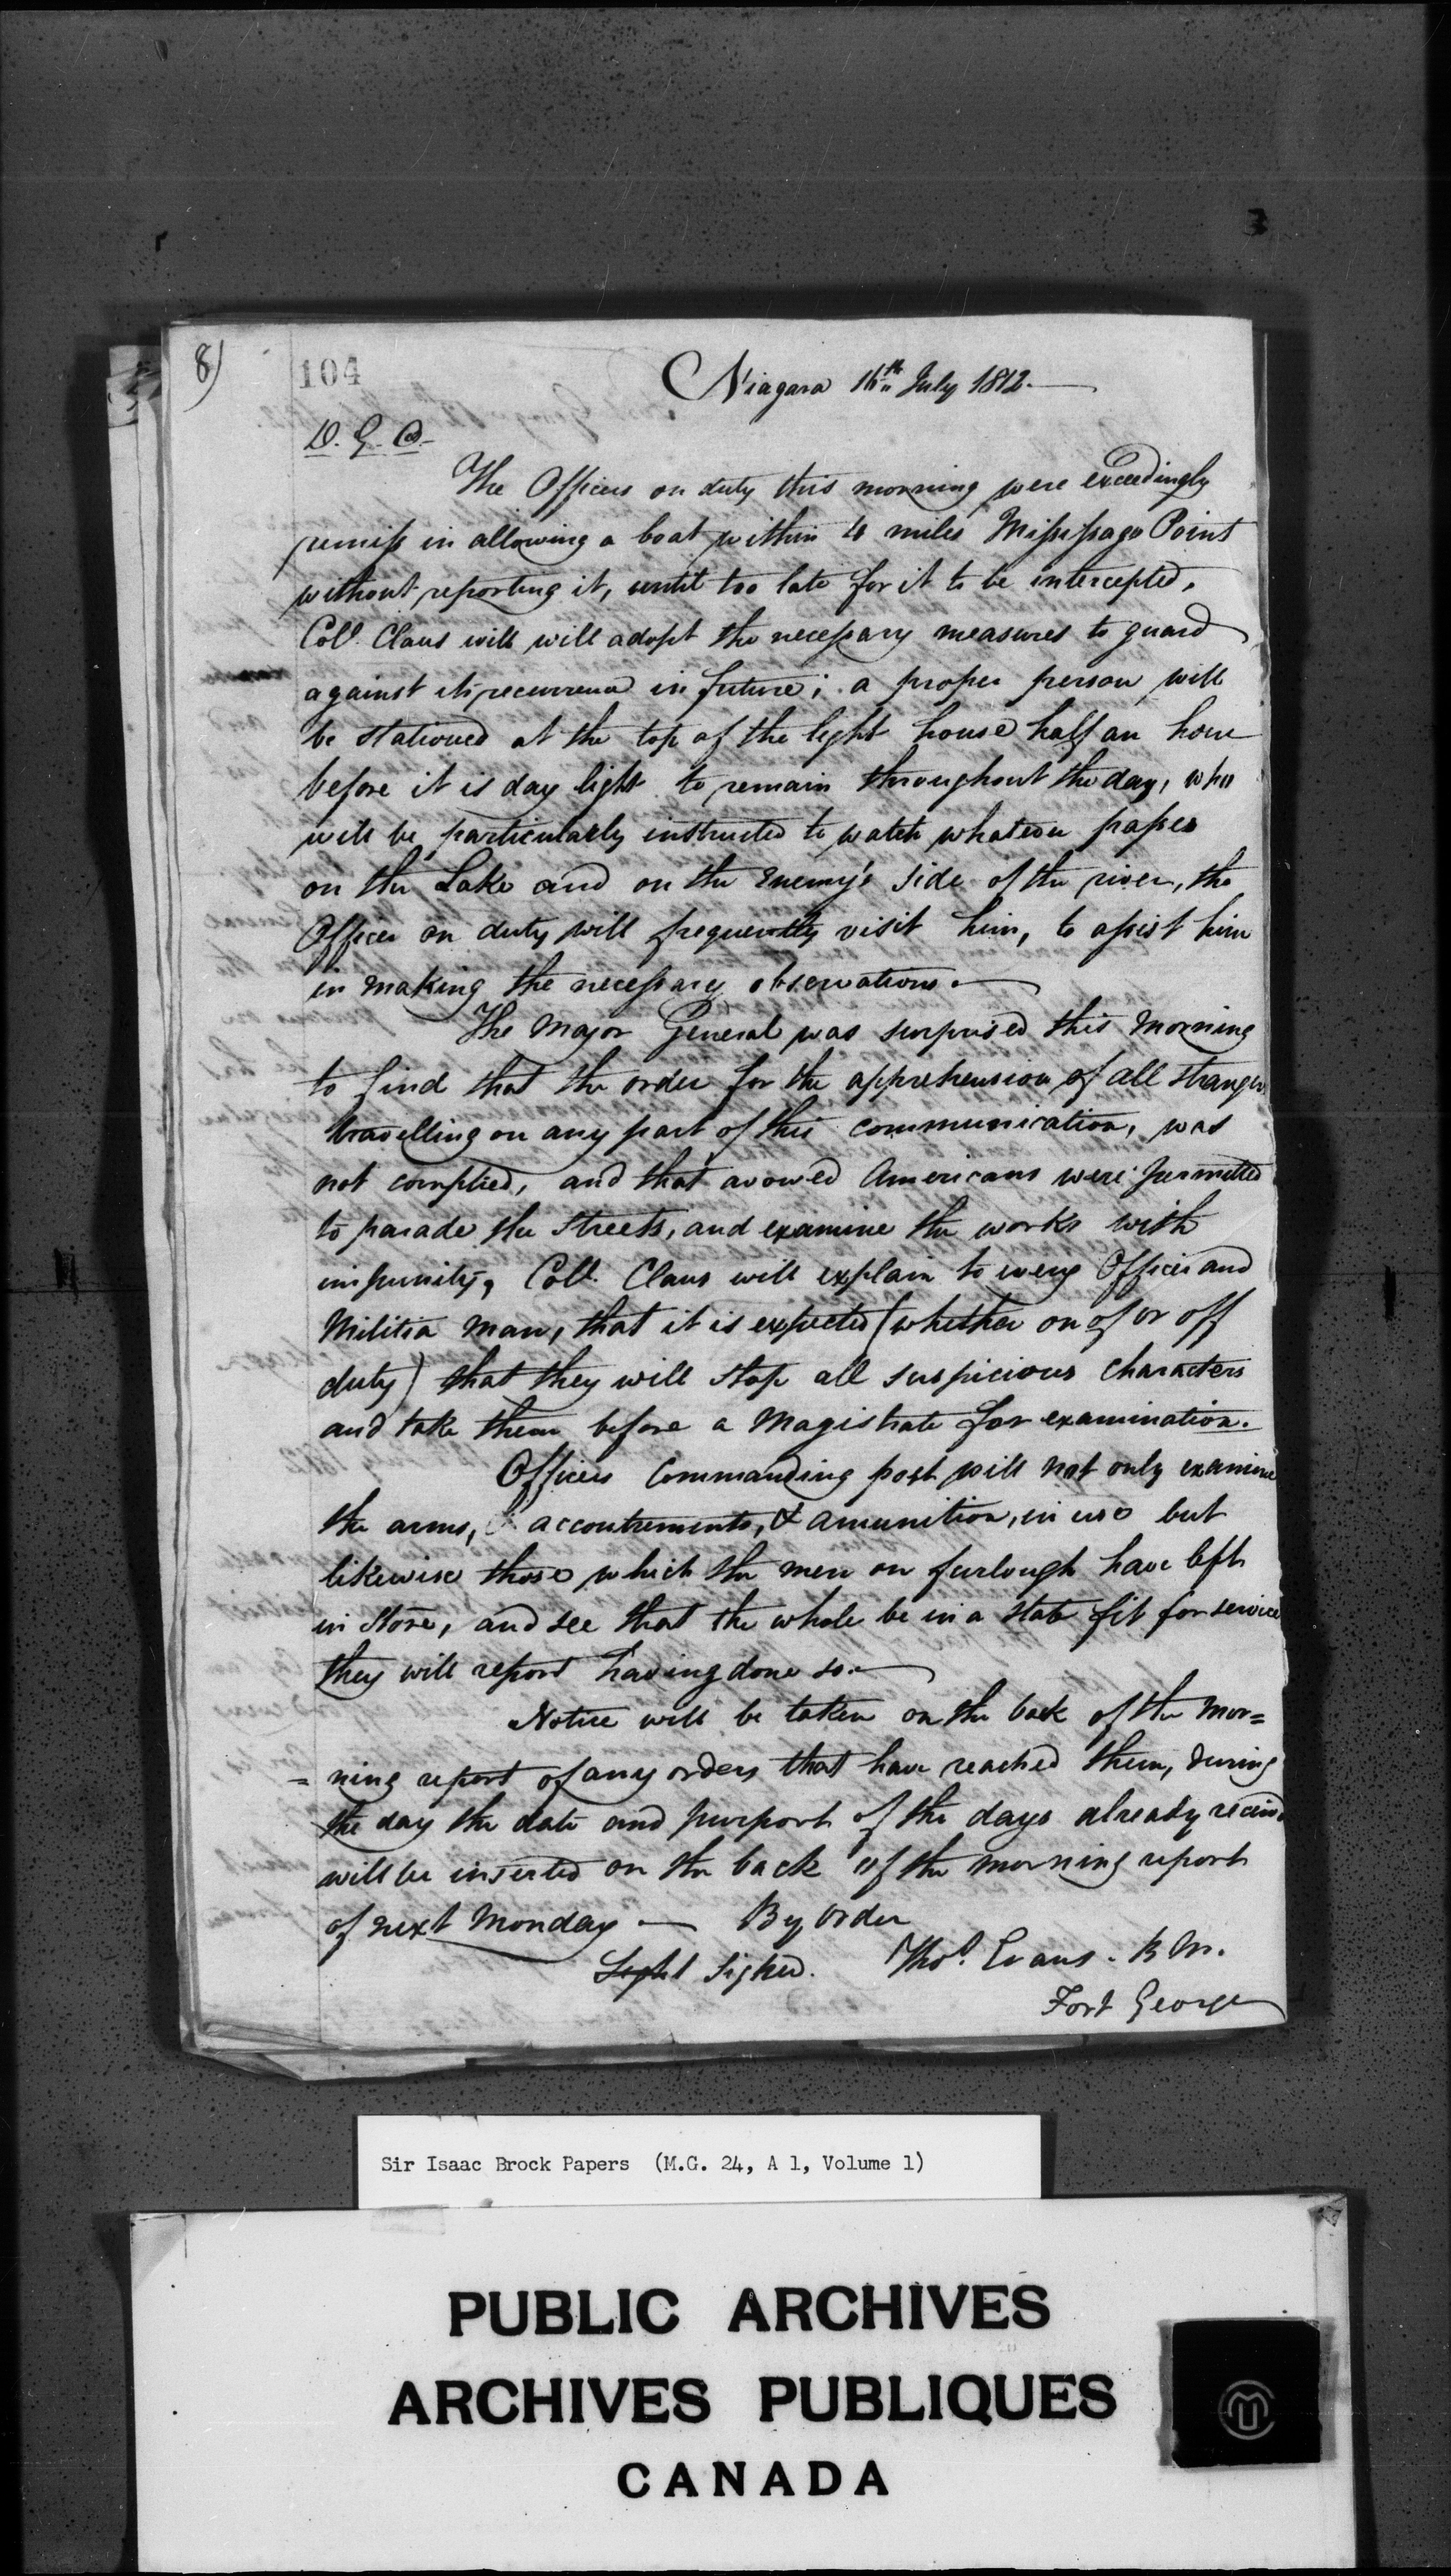 8)
104
Niagara 16th July 1812.
D. G. O.
The Officers on duty this morning were exceedingly
remiss in allowing a boat within 4 miles Missisago Point
without reporting it, until too late for it to be intercepted,
Coll. Claus will will adopt the necessary measures to guard
against its recurrence in future; a proper person will
be stationed at the top of the light house half an hour
before it is day light to remain throughout the day, who
will be particularly instructed to watch whatever passes
on the Lake and on the Enemy's side of the river, the
Officer on duty will frequently visit him, to assist him
in making the necessary observations.
The Major General was surprised this Morning
to find that the order for the apprehension of all strangers
travelling on any part of this communication, was
not complied, and that avowed Americans were permitted
to parade the Streets, and examine the works with
impunity, Coll. Claus will explain to every Officer and
Militia Man, that it is expected (whether on of or off
duty) that they will stop all suspicious Characters
and take them before a Magistrate for examination.
Officers Commanding post will not only examine
the arms, accoutrements, & amunition, in use but
likewise those which the men on furlough have left
in Store, and see that the whole be in a state fit for service
they will report having done so.
Notice will be taken on the back of the Mor=
= ning report of any orders that have reached them, during
the day the date and purport of the days already received
will be inserted on the back of the morning report
of next Monday — By Order
Signed. Thos. Evans. B M.
Fort George
Sir Isaac Brock Papers (M.G. 24, A 1, Volume 1)
PUBLIC ARCHIVES
ARCHIVES PUBLIQUES
CANADA